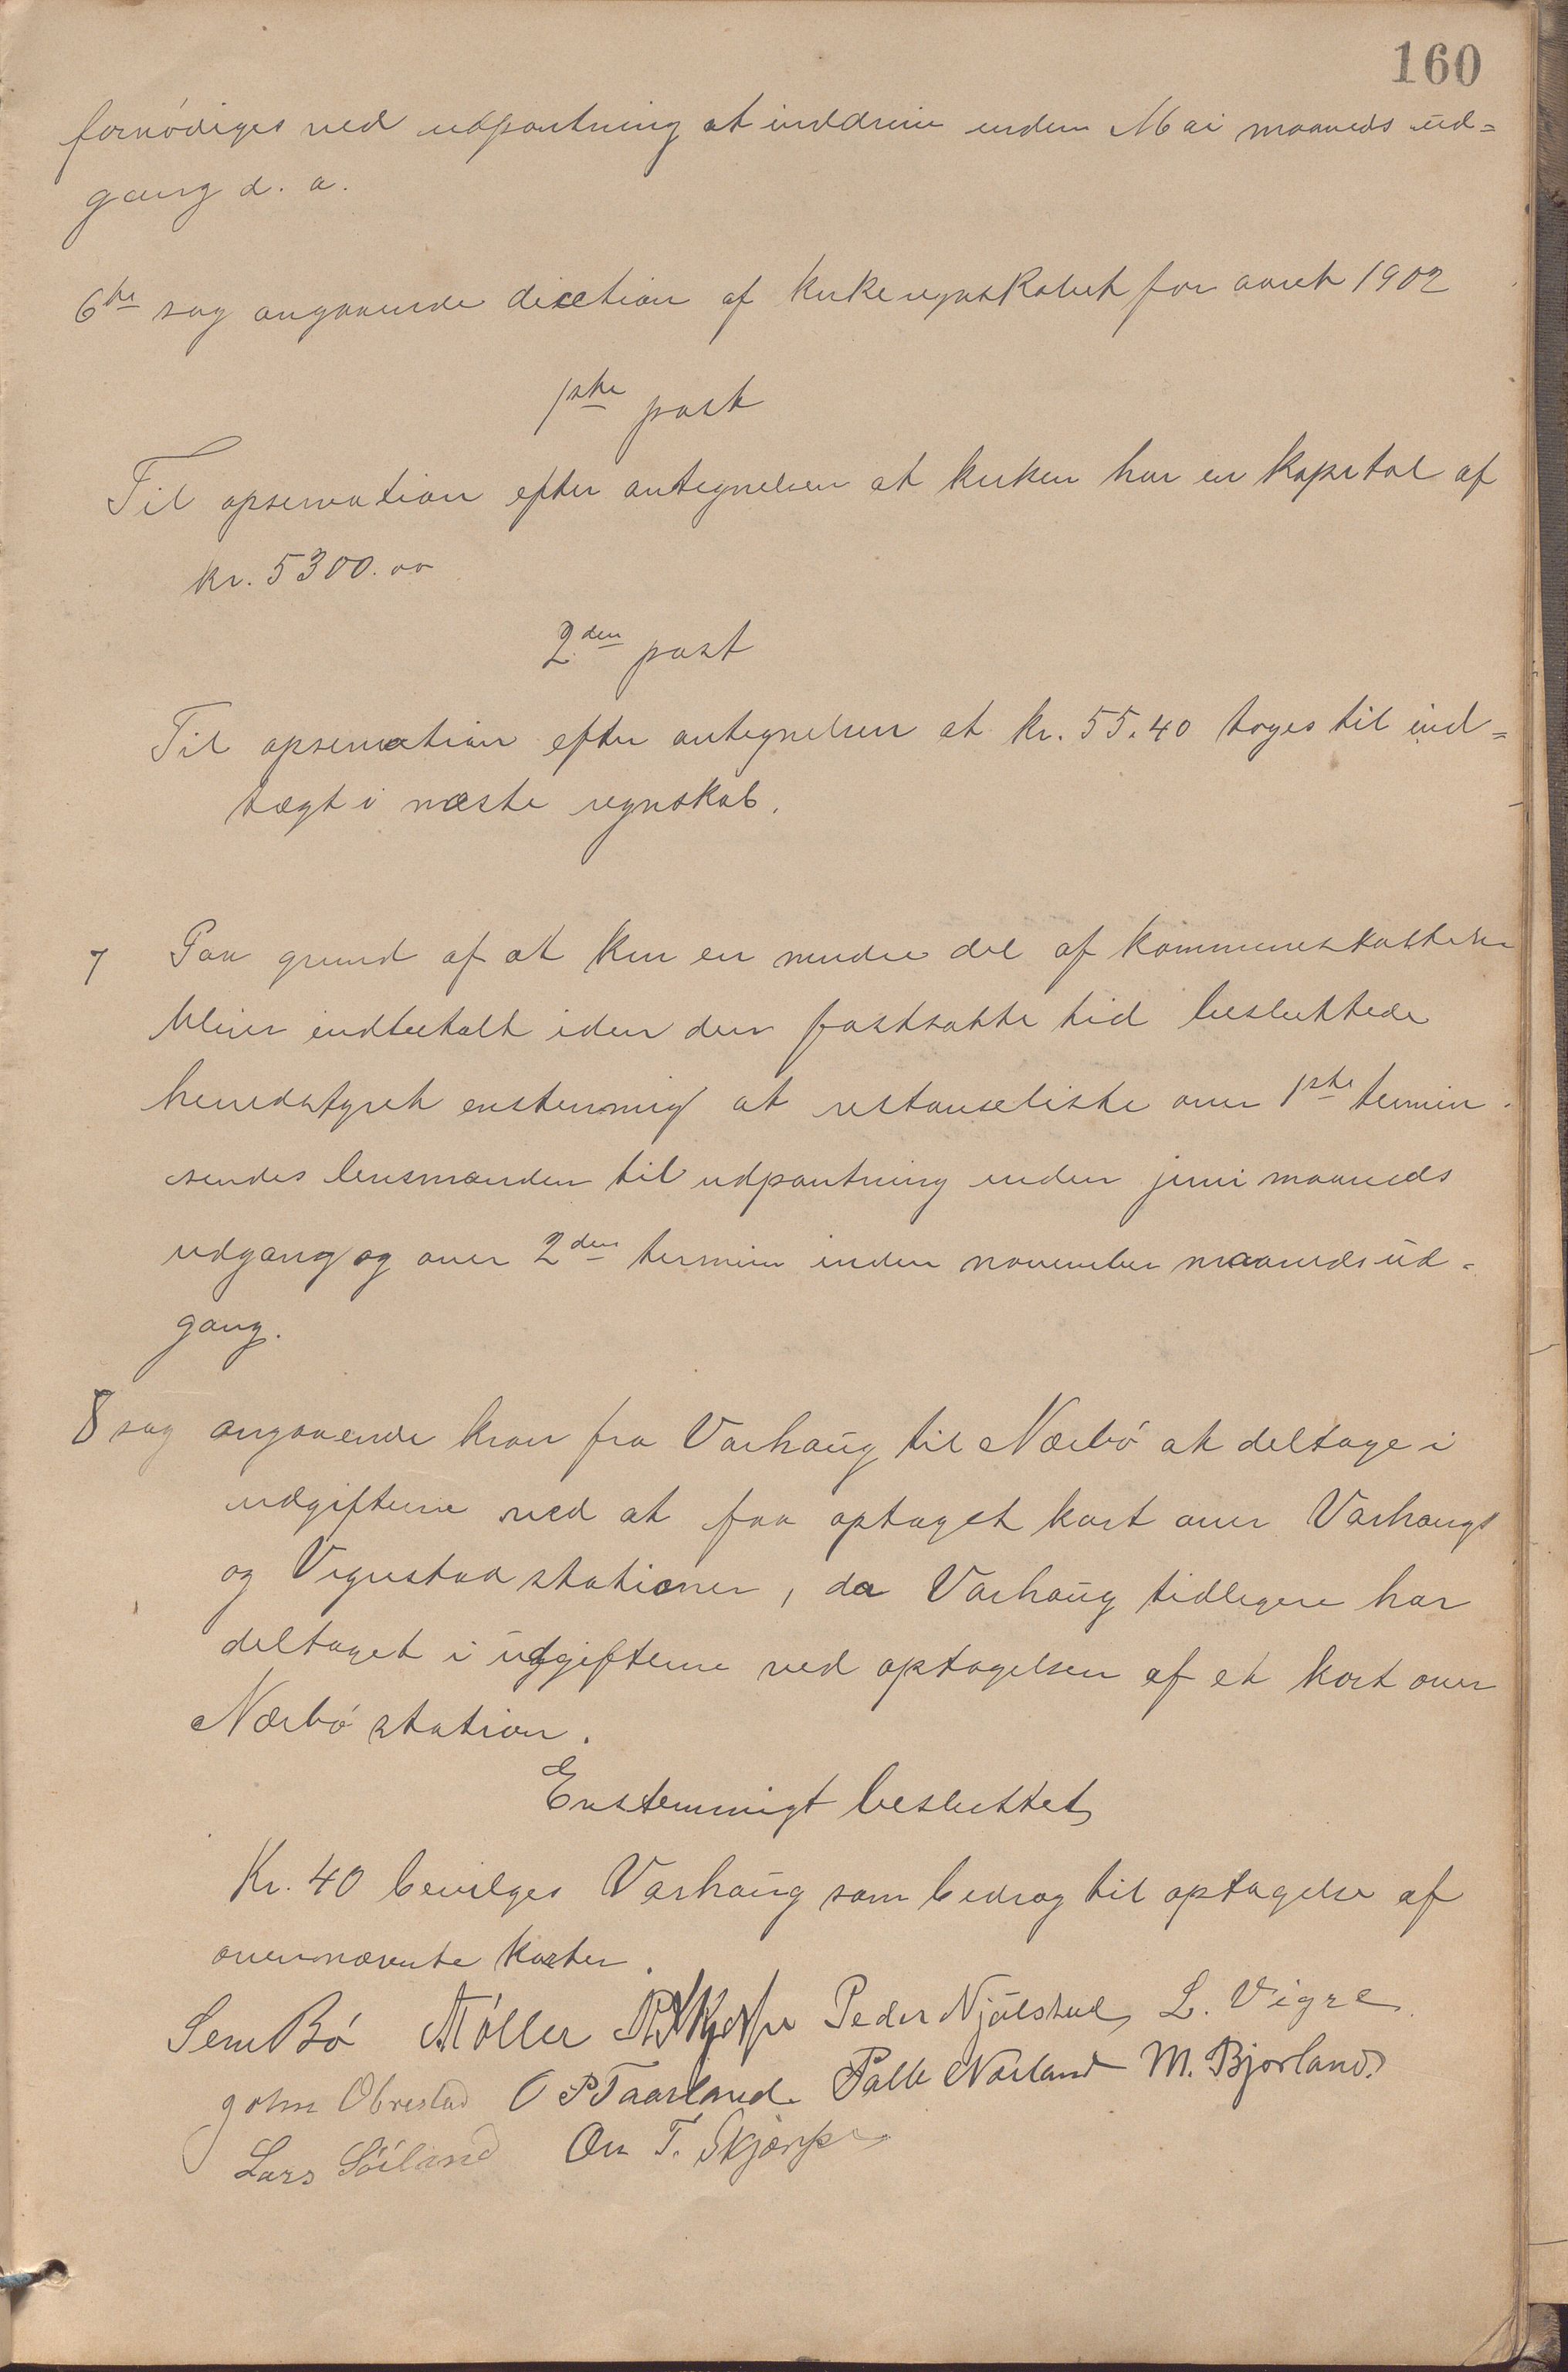 160
fornødiges ved udpantning at inddrive inden Mai maaneds ud=
gang d. a.
6te sag angaaende dicetion af kirkeregnskabet for aaret 1902
1ste post
Til opservation efter antegnelsen at kirken har en kapital af
kr. 5300.00
2den post
Til opservation efter antegnelsen at kr. 55.40 toges til ind=
tægt i næste regnskab.
7 Paa grund af at kun en mindre del af kommuneskatterne
bliver indbetalt iden den fastsatte tid besluttede
herredstyret enstemmig at restanseliste over 1ste termin
sendes lensmanden til udpantning inden juni maaneds
udgang og over 2den termin inden november maaneds ud=
gang.
8 sag angaaende krav fra Varhaug til Nærbø at deltage i
udgifterne ved at faa optaget kart over Varhaugs
og Vigrestad stationer, da Varhaug tidligere har
deltaget i udgifterne ved optagelsen af et kart over
Nærbø station.
Enstemmigt besluttet
Kr. 40 bevilges Varhaug som bedrag til optagelse af
overnævnte karter.
Sem Bø Møller Peder Njålstad L. Vigre
John Obrestad O P Taarland Palle Nærland M. Bjorland
Lars Søiland On T. Skjærpe